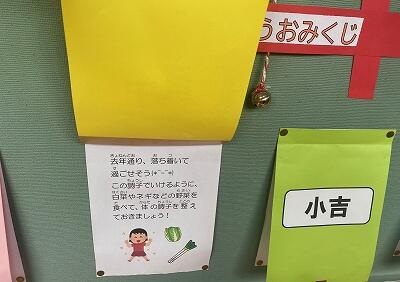 うおみくじ
去年通り、落ち着いて
過ごせそう(*^-^*)
この調子でいけるように、
白菜やネギなどの野菜を
食べて、体の調子を整え
ておきましょう！
小吉